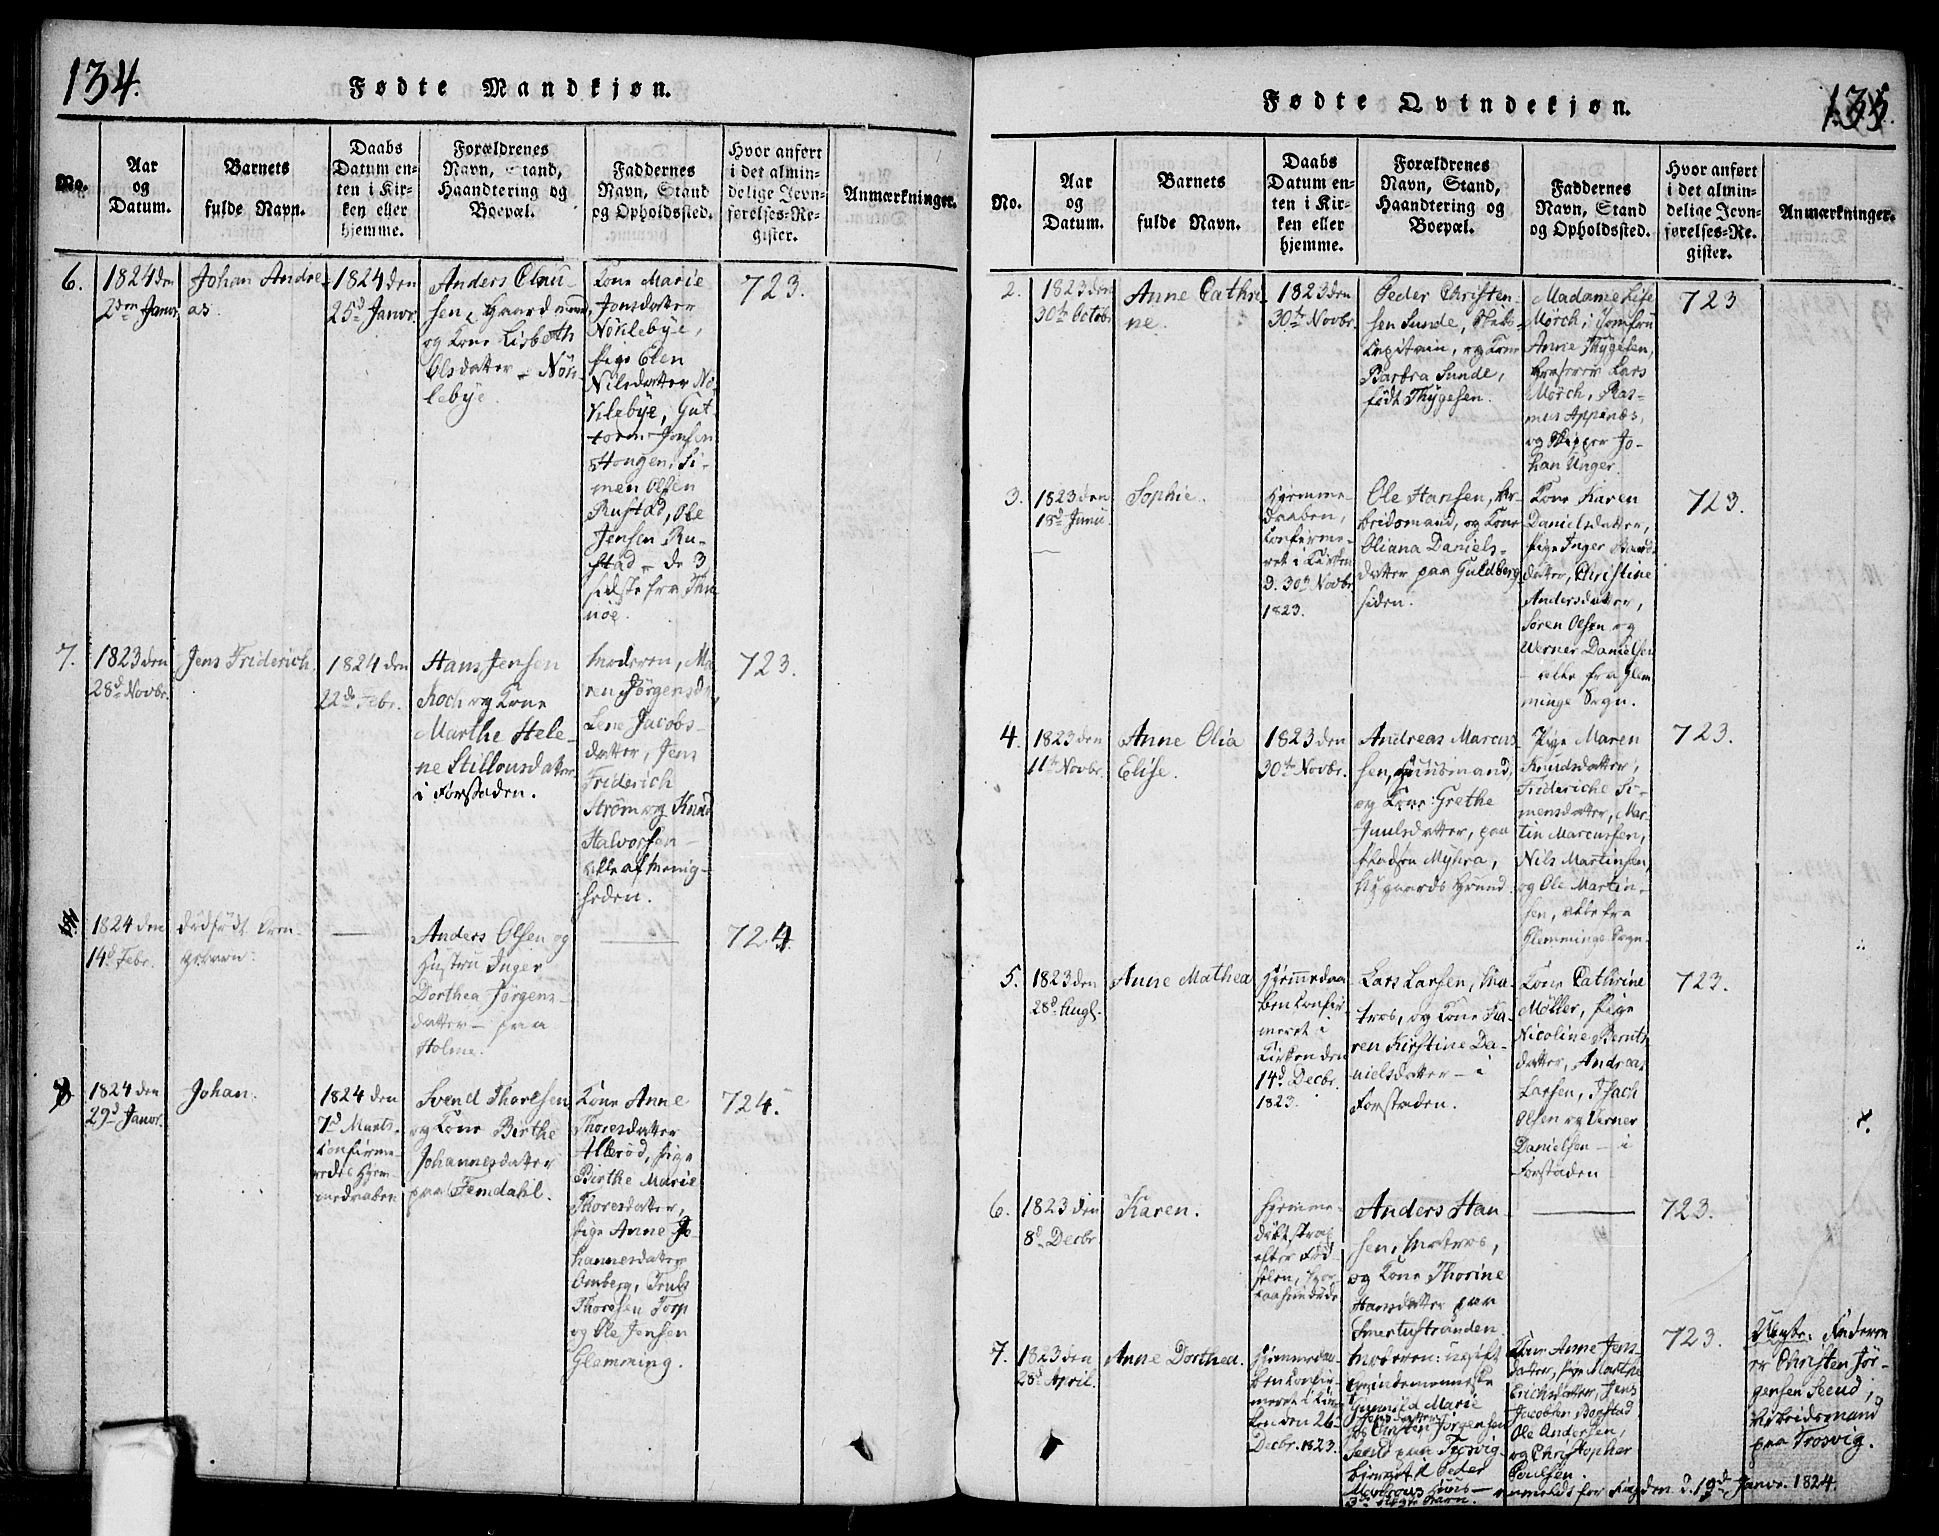 134.
Fødte Mandkjøn.
No.
Aar
og
Datum.
Barnets
fulde Navn.
Daabs
Datum en-
ten i Kir-
ken eller
hjemme.
Forældrenes
Navn, Stand,
Haandtering og
Boepæl.
Faddernes
Navn, Stand
og Opholdssted.
Hvor anført
i det almin-
delige Jevn-
førelses-Re-
gister.
Anmærkninger.
6.
1824 den
2den Janvr.
Johan Andre-
as.
1824 den
25d Janvr.
Anders Clau-
sen, Gaardmand,
og Kone Lisbeth
Olsdatter - Nør-
lebye.
Kone Marie
Jonsdatter
Nörlebye,
Pige Elen
Nilsdatter Nö-
rlebye, Gut-
torm Jensen
Hougen, Si-
men Olsen
Rustad, Ole
Jensen Ru-
stad - de 3
sidste fra Thu-
nöe.
723.
7.
1823 den
28d Novbr.
Jens Friderich
1824 den
22de Febr.
Hans Jensen
Koch og Kone
Marthe Hele-
ne Stillousdatter
i Forstaden.
Moderen, Ma-
ren Jörgensdr,
Lene Jacobs-
datter, Jens
Friderich
Ström og Knud
Halvorsen -
alle af Menig-
heden.
723.
1824 den
14d Febr.
dödfödt Dren-
gebarn.
Anders Olsen og
Hustru Inger
Dorthea Jörgens-
datter - paa
Holme.
724
8
1824 den
29d Janvr.
Johan.
1824 den
7d Marts
Confirme-
redes Hjem-
medaaben
Svend Thoresen
og Kone Birthe
Johannesdatter
paa Femdahl.
Kone Anne
Thoresdatter
Alleröd, Pige
Birthe Marie
Thoresdatter,
Pige Anne Jo-
hannesdatter
Omberg, Truls
Thoresen Torp
og Ole Jensen
Glemming.
724.
135.
Fødte Qvindekjøn.
No.
Aar
og
Datum.
Barnets
fulde Navn.
Daabs
Datum en-
ten i Kir-
ken eller
hjemme.
Forældrenes
Navn, Stand,
Haandtering og
Boepæl.
Faddernes
Navn, Stand
og Opholdssted.
Hvor anført
i det almin-
delige Jevn-
førelses-Re-
gister.
Anmærkninger.
2.
1823 den
30te Octobr
Anne Cathri-
ne.
1823 den
30te Novbr.
Peder Christen-
sen Sunde, Skibs-
Capitain, og Kone
Barbra Sunde,
födt Thygesen.
Madame Lise
Mörch, Jomfru
Anne Thygesen,
Herrer Lars
Mörch, Ras-
mus Appenæs,
og Skipper Jo-
han Unger.
723
3.
1823 den
18d Junii
Sophie.
Hjemme-
daaben,
Confirme-
ret i Kirken
d. 30te Novbr
1823.
Ole Hansen, Ar-
beidsmand, og Kone
Oliana Daniels-
datter paa Guldberg-
siden.
Kone Karen
Danielsdatter,
Pige Inger
datter, Christine
Andersdatter,
Sören Olsen og
Werner Danielsen
- alle fra Glem-
minge Sogn.
723.
4.
1823 den
11te Novbr.
Anne Olia
Elise.
1823 den
30te Novbr.
Andreas Marcus-
sen, Huusmand,
og Kone Grethe
Juulsdatter, paa
Myhra,
Grund
Pige Maren
Knudsdatter,
Frideriche Si-
mensdatter, Mar-
tin Marcussen,
Nils Martinsen,
og Ole Martin-
sen, alle fra
Glemminge Sogn.
723.
5.
1823 den
28d Augs.
Anne Mathea
Hjemmedaa-
ben Confir-
meret i
Kirken den
14d Decbr.
1823.
Lars Larsen, Ma-
tros, og Kone Ka-
ren Kirstine Da-
nielsdatter - i
Forstaden.
Kone Cathrine
Möller, Pige
Nicoline Bernts-
datter, Andreas
Larsen, Isach
Olsen og Verner
Danielsen - i
Forstaden
723.
6.
1823 den
8d Decbr
Karen.
Hjemme-
döbt strax
efter Föd-
selen,
Anders Han-
sen, Matros,
og Kone Thorine
Hansdatter paa
Smertustranden.
723.
7.
1823 den
28d April.
Anne Dorthea.
Hjemmedaa-
ben Confir-
meret i Kir-
ken den 26
Decbr. 1823.
Moderen: ugift
Qvindemenneske
Gunnild Marie
Jensdatter
og Christen Jörgensen
Seeud paa Trosvig
Peder
Kone Anne Jens-
datter, Pige Marthe
Erichsdatter, Jens
Jacobsen Borstad
Ole Andersen,
og Christopher
Poulsen.
723.
Uægte. Faderen
er Christen Jör-
gensen Seeud,
Arbeidsmand
paa Trosvig.
anmeldt for Fogden d. 19de Janvr. 1824.